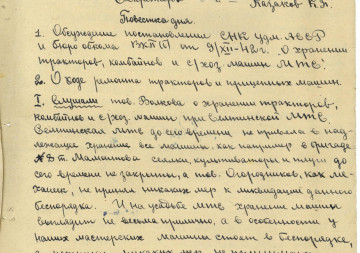 Казаков К.П.
Повестка дня
1. Обсуждение постановления СНК Удм. АССР
и бюро обкома ВКП(б) от 9/XII-42г. О хранении
тракторов, комбайнов и с/хоз. машин МТС.
2. О ходе ремонта тракторов и прицепных машин.
I. Слушали тов. Волкова о хранении тракторов,
комбайнов и с/хоз. машин при МТС.
МТС до сего времени не привела в над-
лежащее хранение все машины как например в бригаде
№8 т. сеялки, культиваторы и плуги до
сего времени не закрыты, а тов. Огородников, как ме-
ханик, не принял никаких мер к ликвидации данного
беспорядка. И на усадьбе МТС хранение машин
выглядит не весьма прилично, а в особенности у
наших мастерских машины стоят в беспорядке,